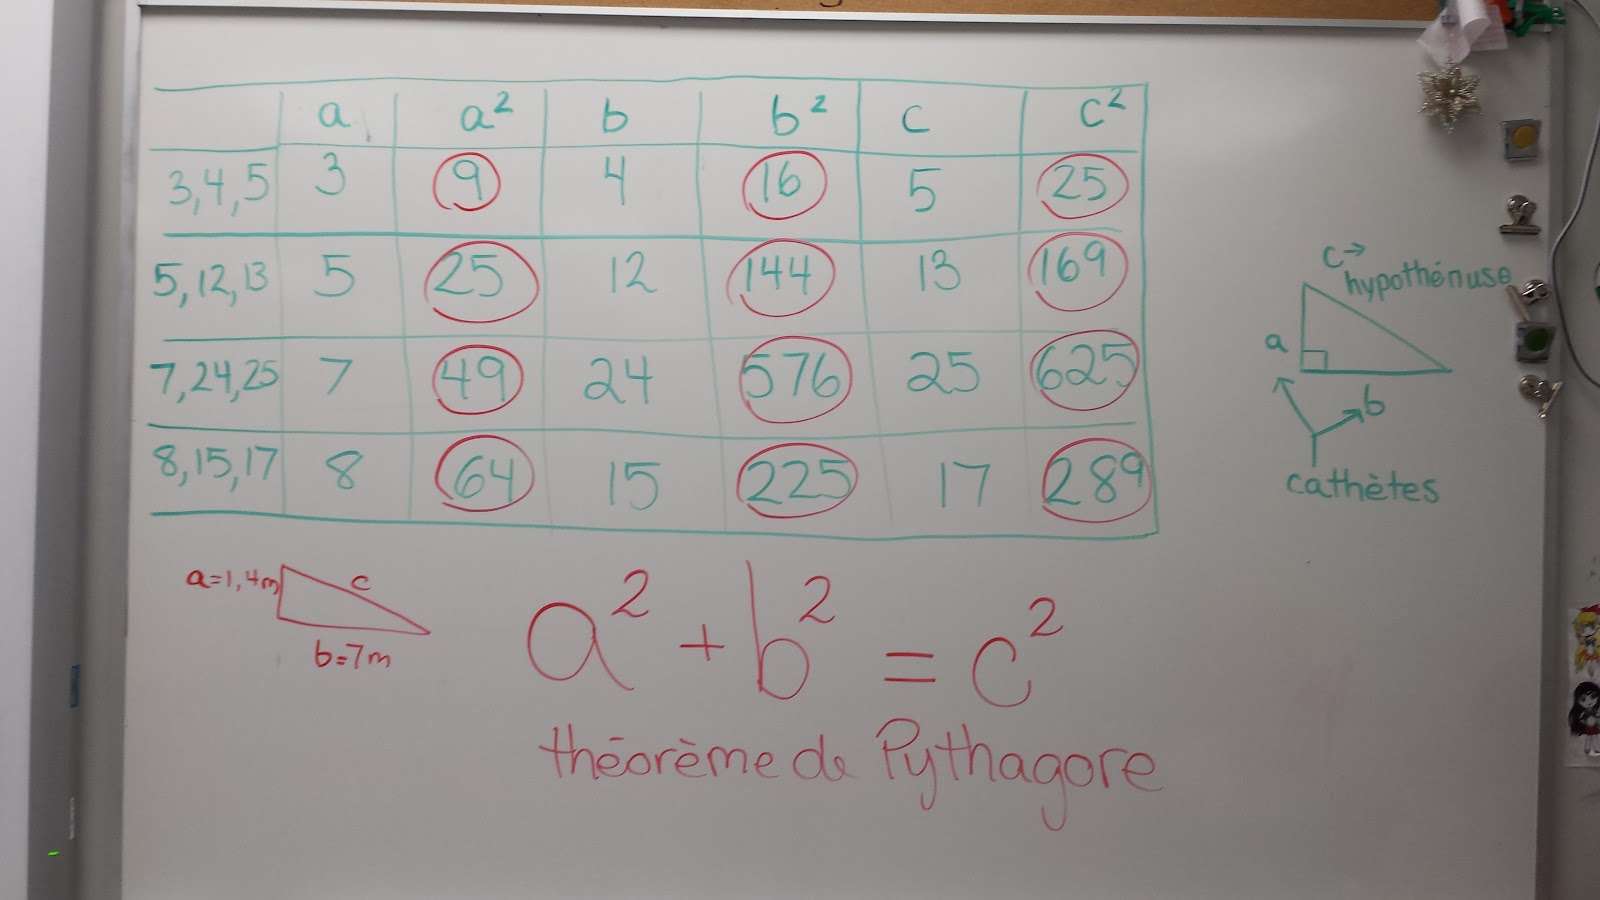 a a² b b² c c²
3,4,5 3 9 4 16 5 25
5,12,13 5 25 12 144 13 169
7,24,25 7 49 24 576 25 625
8,15,17 8 64 15 225 17 289
c→
hypothénuse
a
b
cathètes
a=1,4m
c
b=7m
a² + b² = c²
théorème de Pythagore